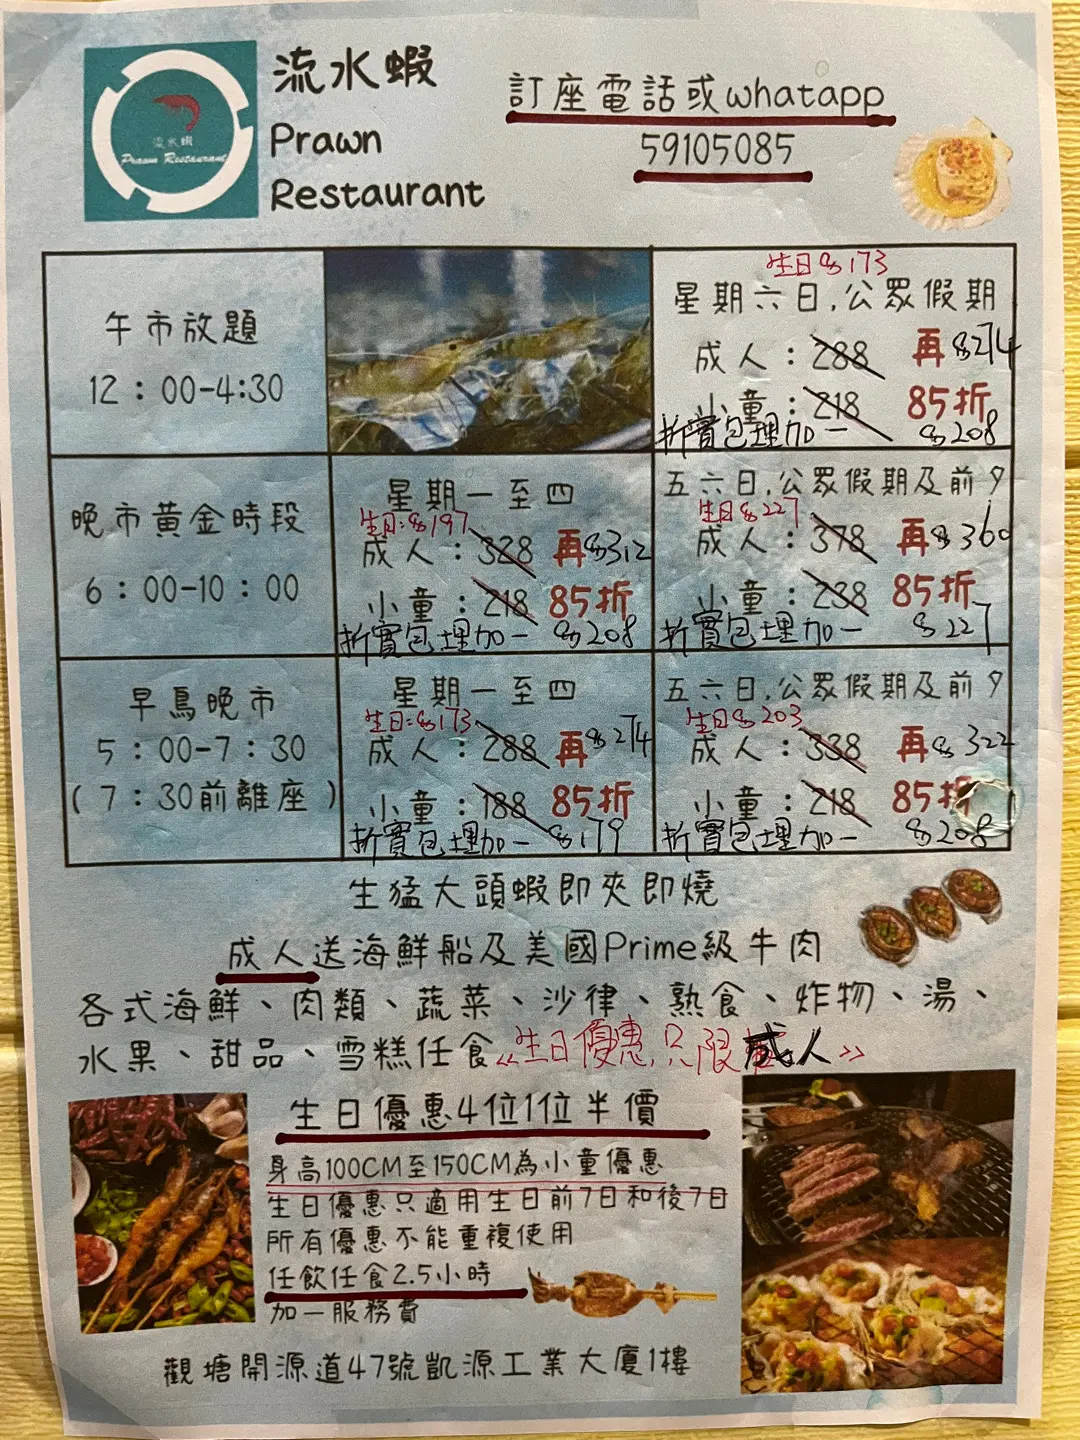 流水蝦
Prawn
Restaurant
流水蝦
Prawn Restaurant
訂座電話或whatapp
59105085
午市放題
12：00-4:30
生日$173
星期六日,公眾假期
成人：288 再$274
小童：218 85折
折實包埋加一 $208
晚市黃金時段
6：00-10：00
星期一至四
生日:$197
成人：328 再$312
小童：218 85折
折實包埋加一 $208
五六日,公眾假期及前夕
生日$227
成人：378 再$360
小童：238 85折
折實包埋加一 $227
早鳥晚市
5：00-7：30
(7：30前離座)
星期一至四
生日:$173
成人：288 再$274
小童：188 85折
折實包埋加一 $179
五六日,公眾假期及前夕
生日$203
成人：338 再$322
小童：218 85折
折實包埋加一 $208
生猛大頭蝦即夾即燒
成人送海鮮船及美國Prime級牛肉
各式海鮮、肉類、蔬菜、沙律、熟食、炸物、湯、
水果、甜品、雪糕任食<<生日優惠,只限成人>>
生日優惠4位1位半價
身高100CM至150CM為小童優惠
生日優惠只適用生日前7日和後7日
所有優惠不能重複使用
任飲任食2.5小時
加一服務費
觀塘開源道47號凱源工業大廈1樓